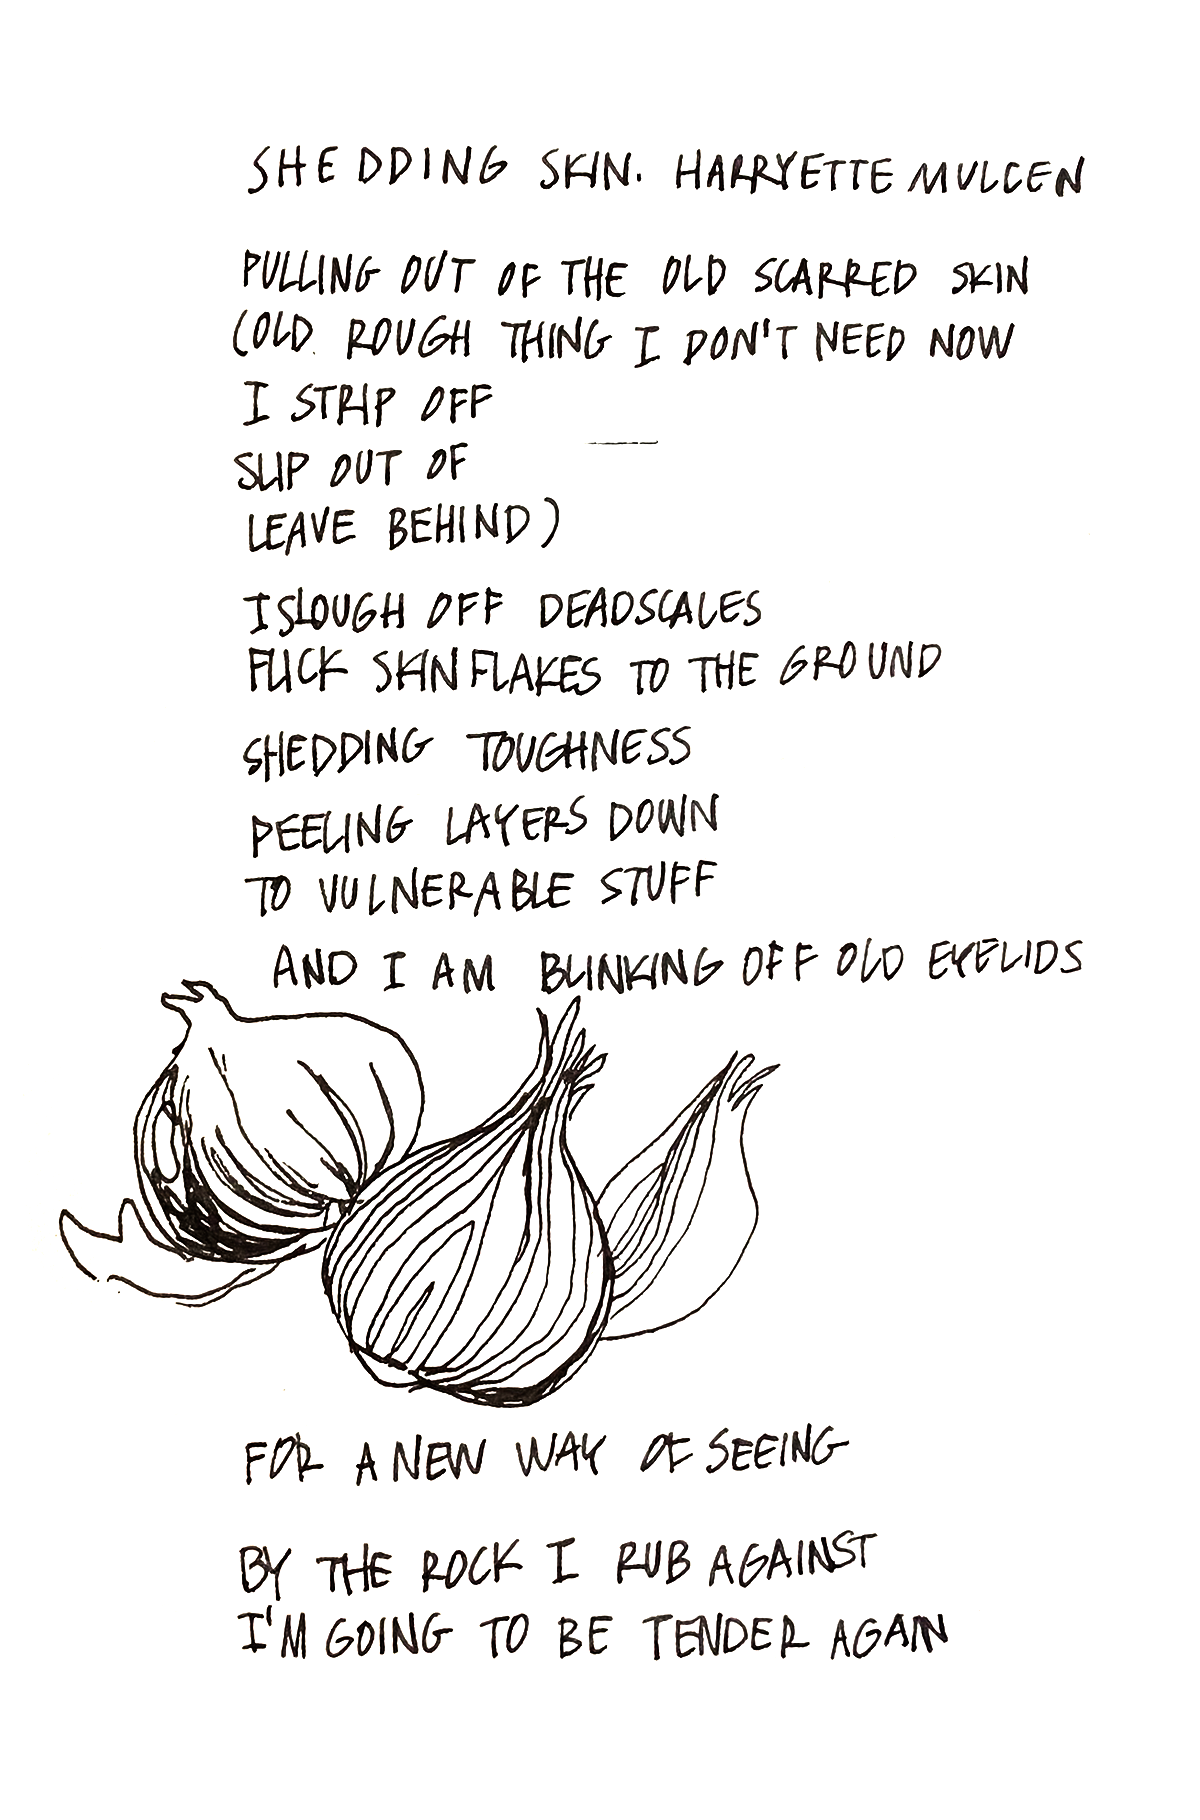 SHEDDING SKIN. HARRYETTE MULLEN
PULLING OUT OF THE OLD SCARRED SKIN
(OLD ROUGH THING I DON'T NEED NOW
I STRIP OFF
SLIP OUT OF
LEAVE BEHIND)
I SLOUGH OFF DEADSCALES
FLICK SKINFLAKES TO THE GROUND
SHEDDING TOUGHNESS
PEELING LAYERS DOWN
TO VULNERABLE STUFF
AND I AM BLINKING OFF OLD EYELIDS
FOR A NEW WAY OF SEEING
BY THE ROCK I RUB AGAINST
I'M GOING TO BE TENDER AGAIN